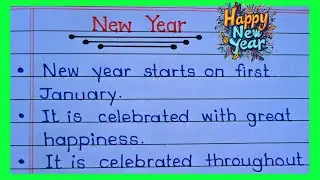 New Year
Happy
New
Year
New year starts on first
January.
It is celebrated with great
happiness.
It is celebrated throughout